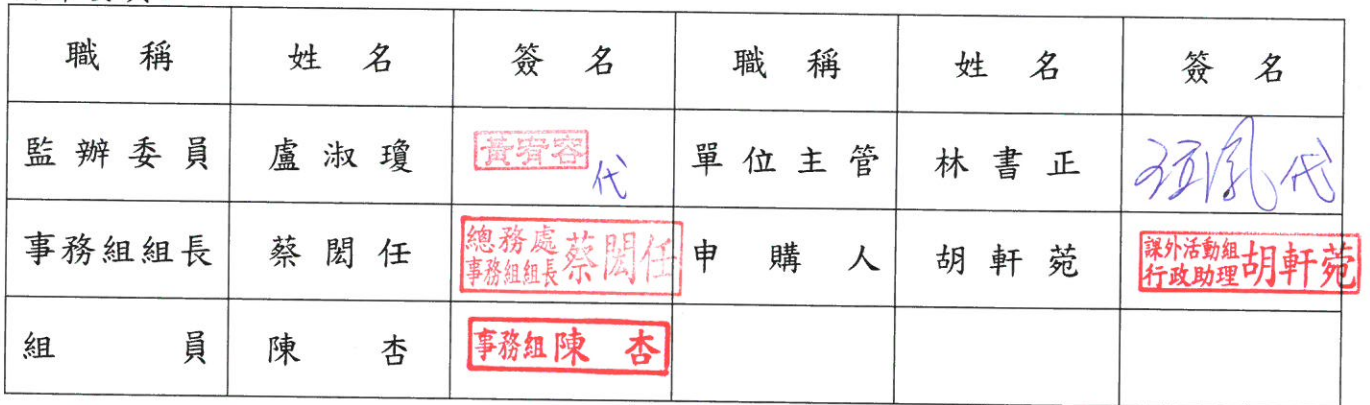 職稱 姓名 簽名 職稱 姓名 簽名
監辦委員 盧淑瓊 黃宥容 代 單位主管 林書正 代
事務組組長 蔡閎任 總務處 事務組組長 蔡閎任 申購人 胡軒菀 課外活動組 行政助理 胡軒菀
組員 陳杏 事務組 陳杏